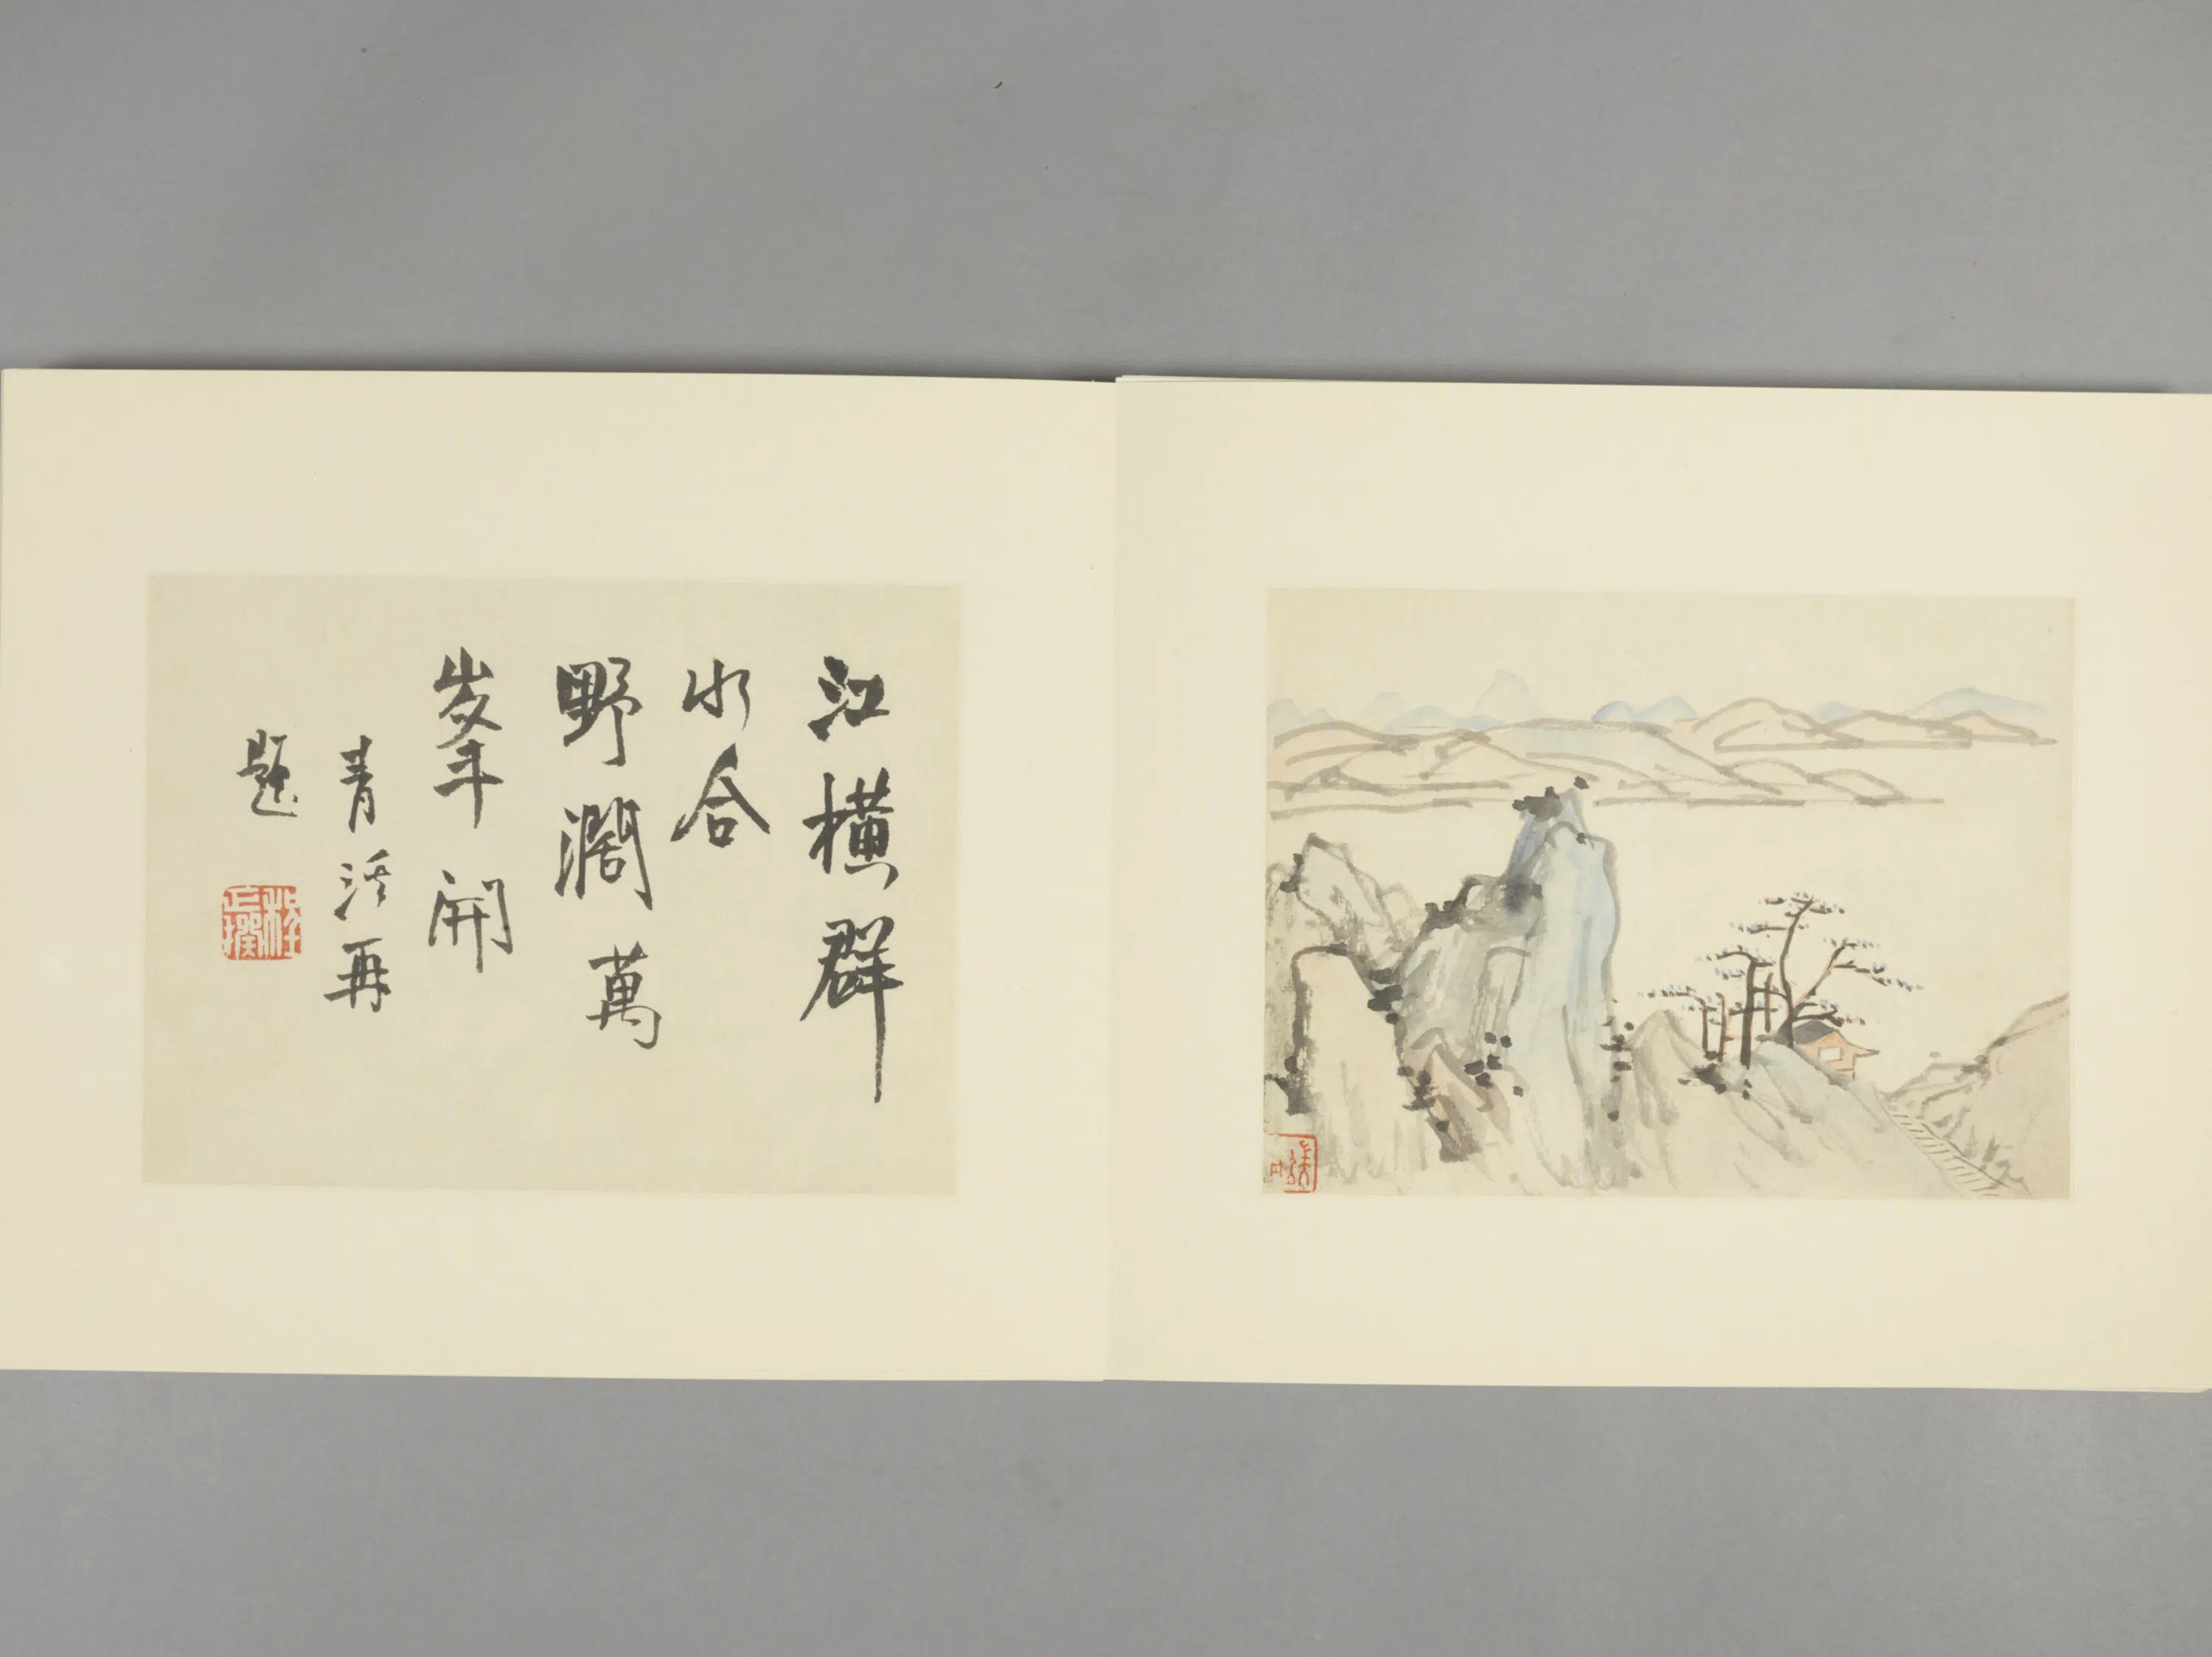 江橫群
水合
野濶萬
峯開
青溪再
題